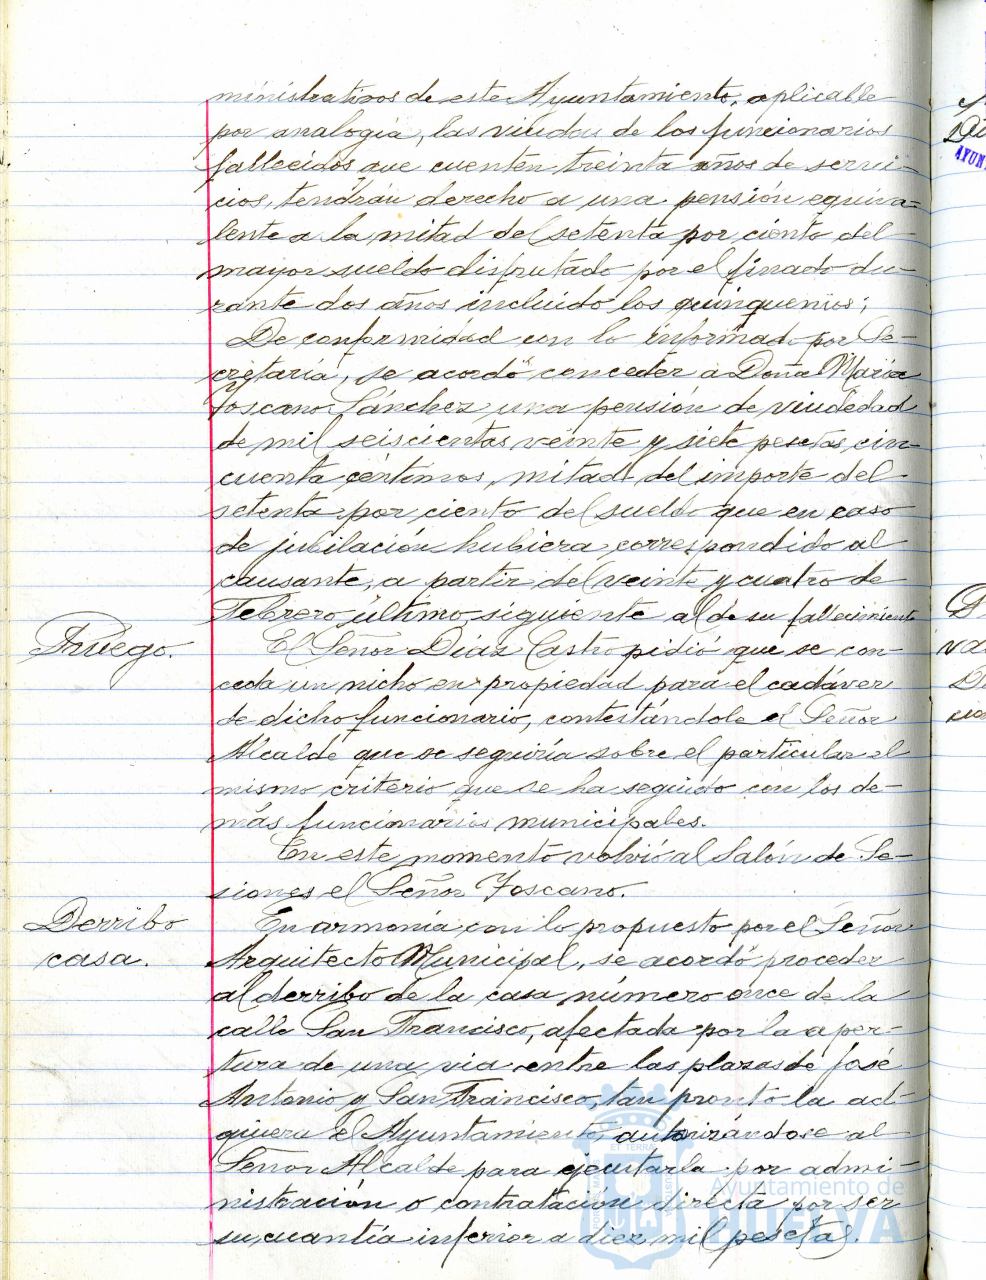 ministrativos de este Ayuntamiento, aplicable
por analogía, las viudas de los funcionarios
fallecidos que cuenten treinta años de servi-
cios, tendrán derecho a una pensión equiva-
lente a la mitad del setenta por ciento del
mayor sueldo disfrutado por el finado du-
rante dos años incluido los quinquenios;
De conformidad con lo informado por Se-
cretaría, se acordó conceder a Doña María
Toscano Sánchez una pensión de viudedad
de mil seiscientas veinte y siete pesetas cin-
cuenta céntimos, mitad del importe del
setenta por ciento del sueldo que en caso
de jubilación hubiera correspondido al
causante, a partir del veinte y cuatro de
Febrero último, siguiente al de su fallecimiento
Ruego.
El Señor Díaz Castro pidió que se con-
ceda un nicho en propiedad para el cadáver
de dicho funcionario, contestándole el Señor
Alcalde que se seguiría sobre el particular el
mismo criterio que se ha seguido con los de-
más funcionarios municipales.
En este momento volvió al Salón de Se-
siones el Señor Toscano.
Derribo
casa.
En armonía con lo propuesto por el Señor
Arquitecto Municipal, se acordó proceder
al derribo de la casa número once de la
calle San Francisco, afectada por la aper-
tura de una via entre las plazas de José
Antonio y San Francisco, tan pronto la ad-
quiera el Ayuntamiento, autorizándose al
Señor Alcalde para ejecutarla por admi-
nistración o contratación directa por ser
su cuantía inferior a diez mil pesetas.
Ayuntamiento de
HUELVA